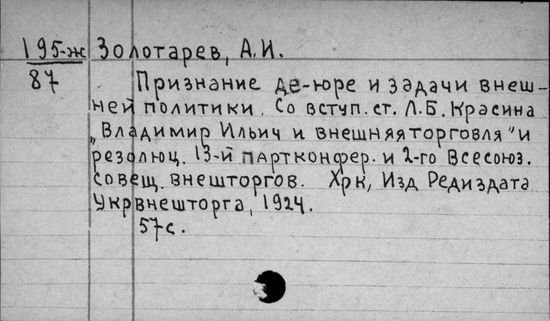 195-ж Золотарев, А.И.
87
Признание де-юре и задачи внеш-
ней политики. Со вступ. ст. Л.Б. Красина
„Владимир Ильич и внешняя торговля" и
резолюц. 13-й партконфер. и 2-го Всесоюз.
совещ. внешторгов. Хрк, Изд Редиздата
Укрвнешторга, 1924.
57с.